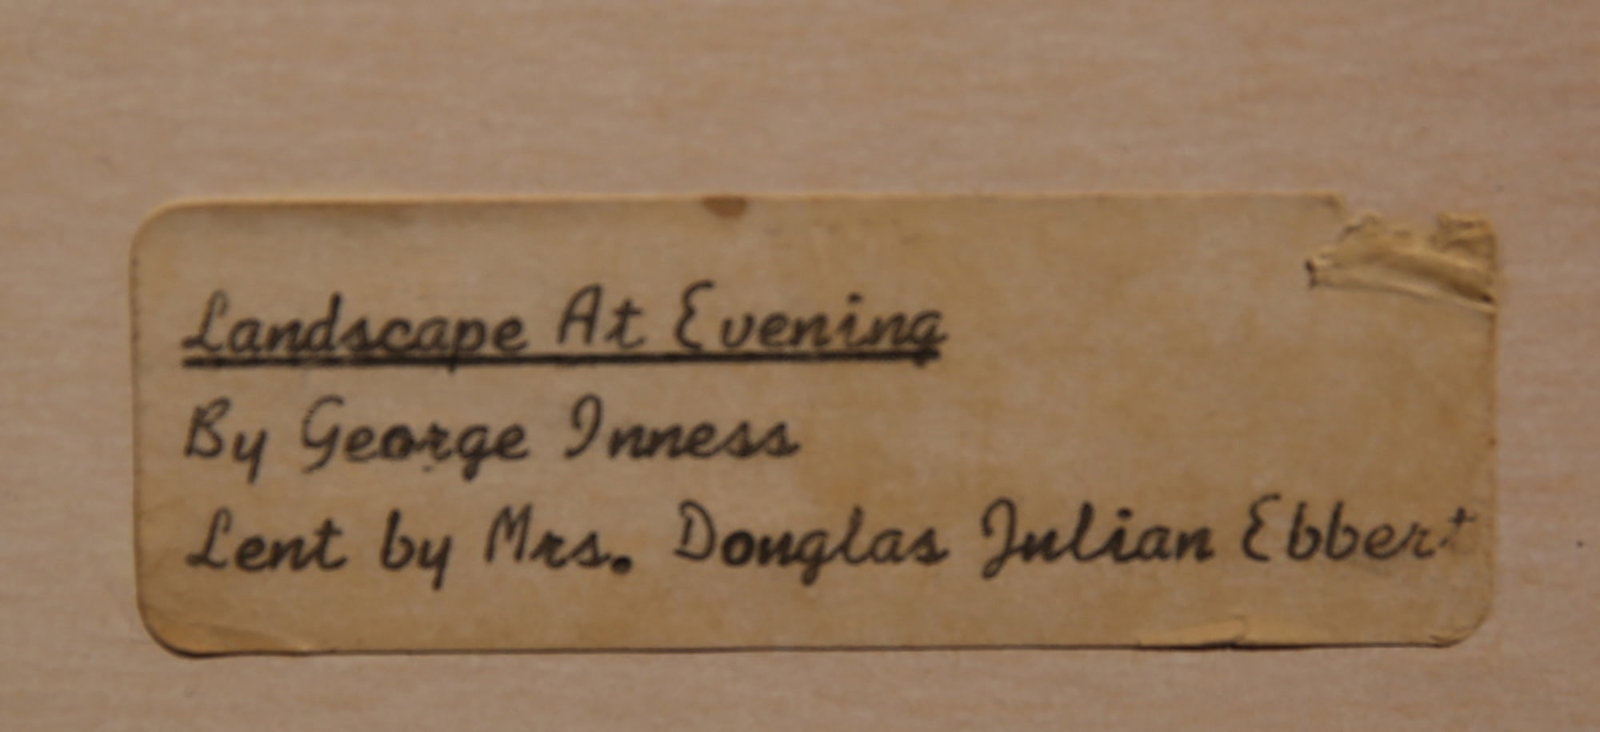 Landscape At Evening
By George Inness
Lent by Mrs. Douglas Julian Ebbert